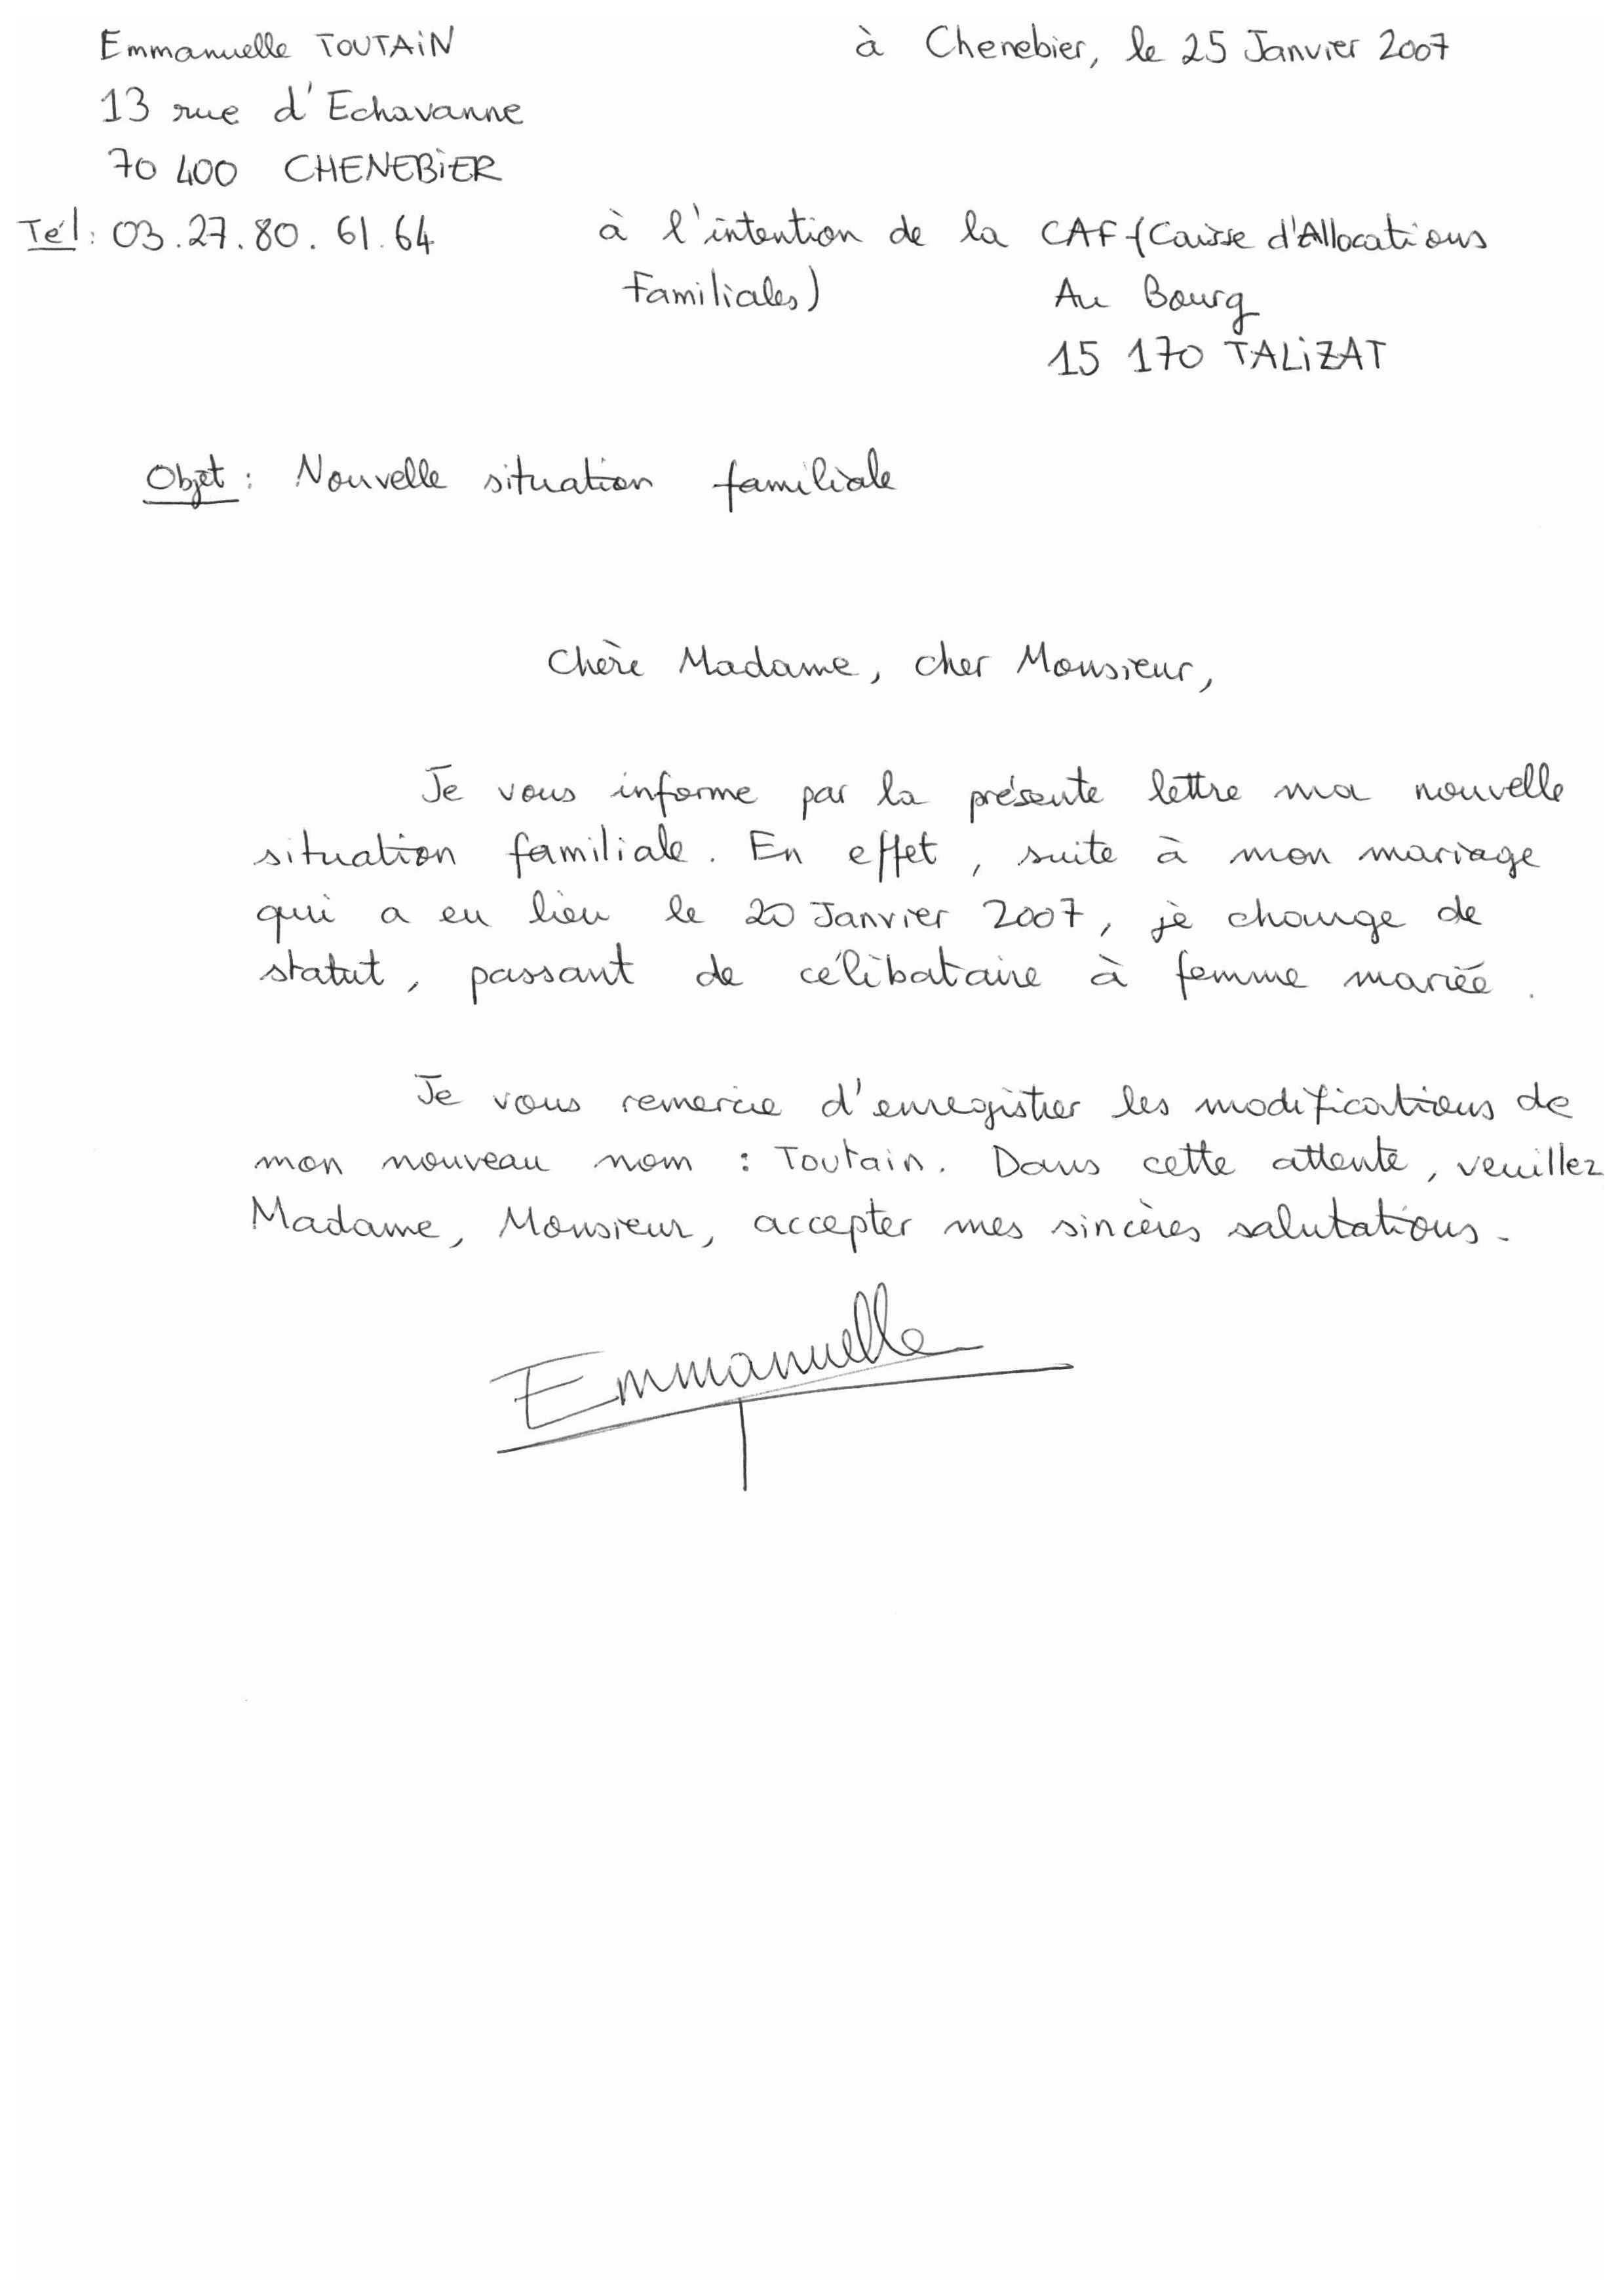 Emmanuelle TOUTAIN
à Chenebier, le 25 Janvier 2007
13 rue d'Echavanne
70 400 CHENEBIER
Tél : 03.27.80.61.64
à l'intention de la CAF (Caisse d'Allocations
Familiales)
Au Bourg
15 170 TALIZAT
Objet : Nouvelle situation familiale
Chère Madame, cher Monsieur,
Je vous informe par la présente lettre ma nouvelle
situation familiale. En effet, suite à mon mariage
qui a eu lieu le 20 Janvier 2007, je change de
statut, passant de célibataire à femme mariée.
Je vous remercie d'enregistrer les modifications de
mon nouveau nom : Toutain. Dans cette attente, veuillez
Madame, Monsieur, accepter mes sincères salutations.
Emmanuelle